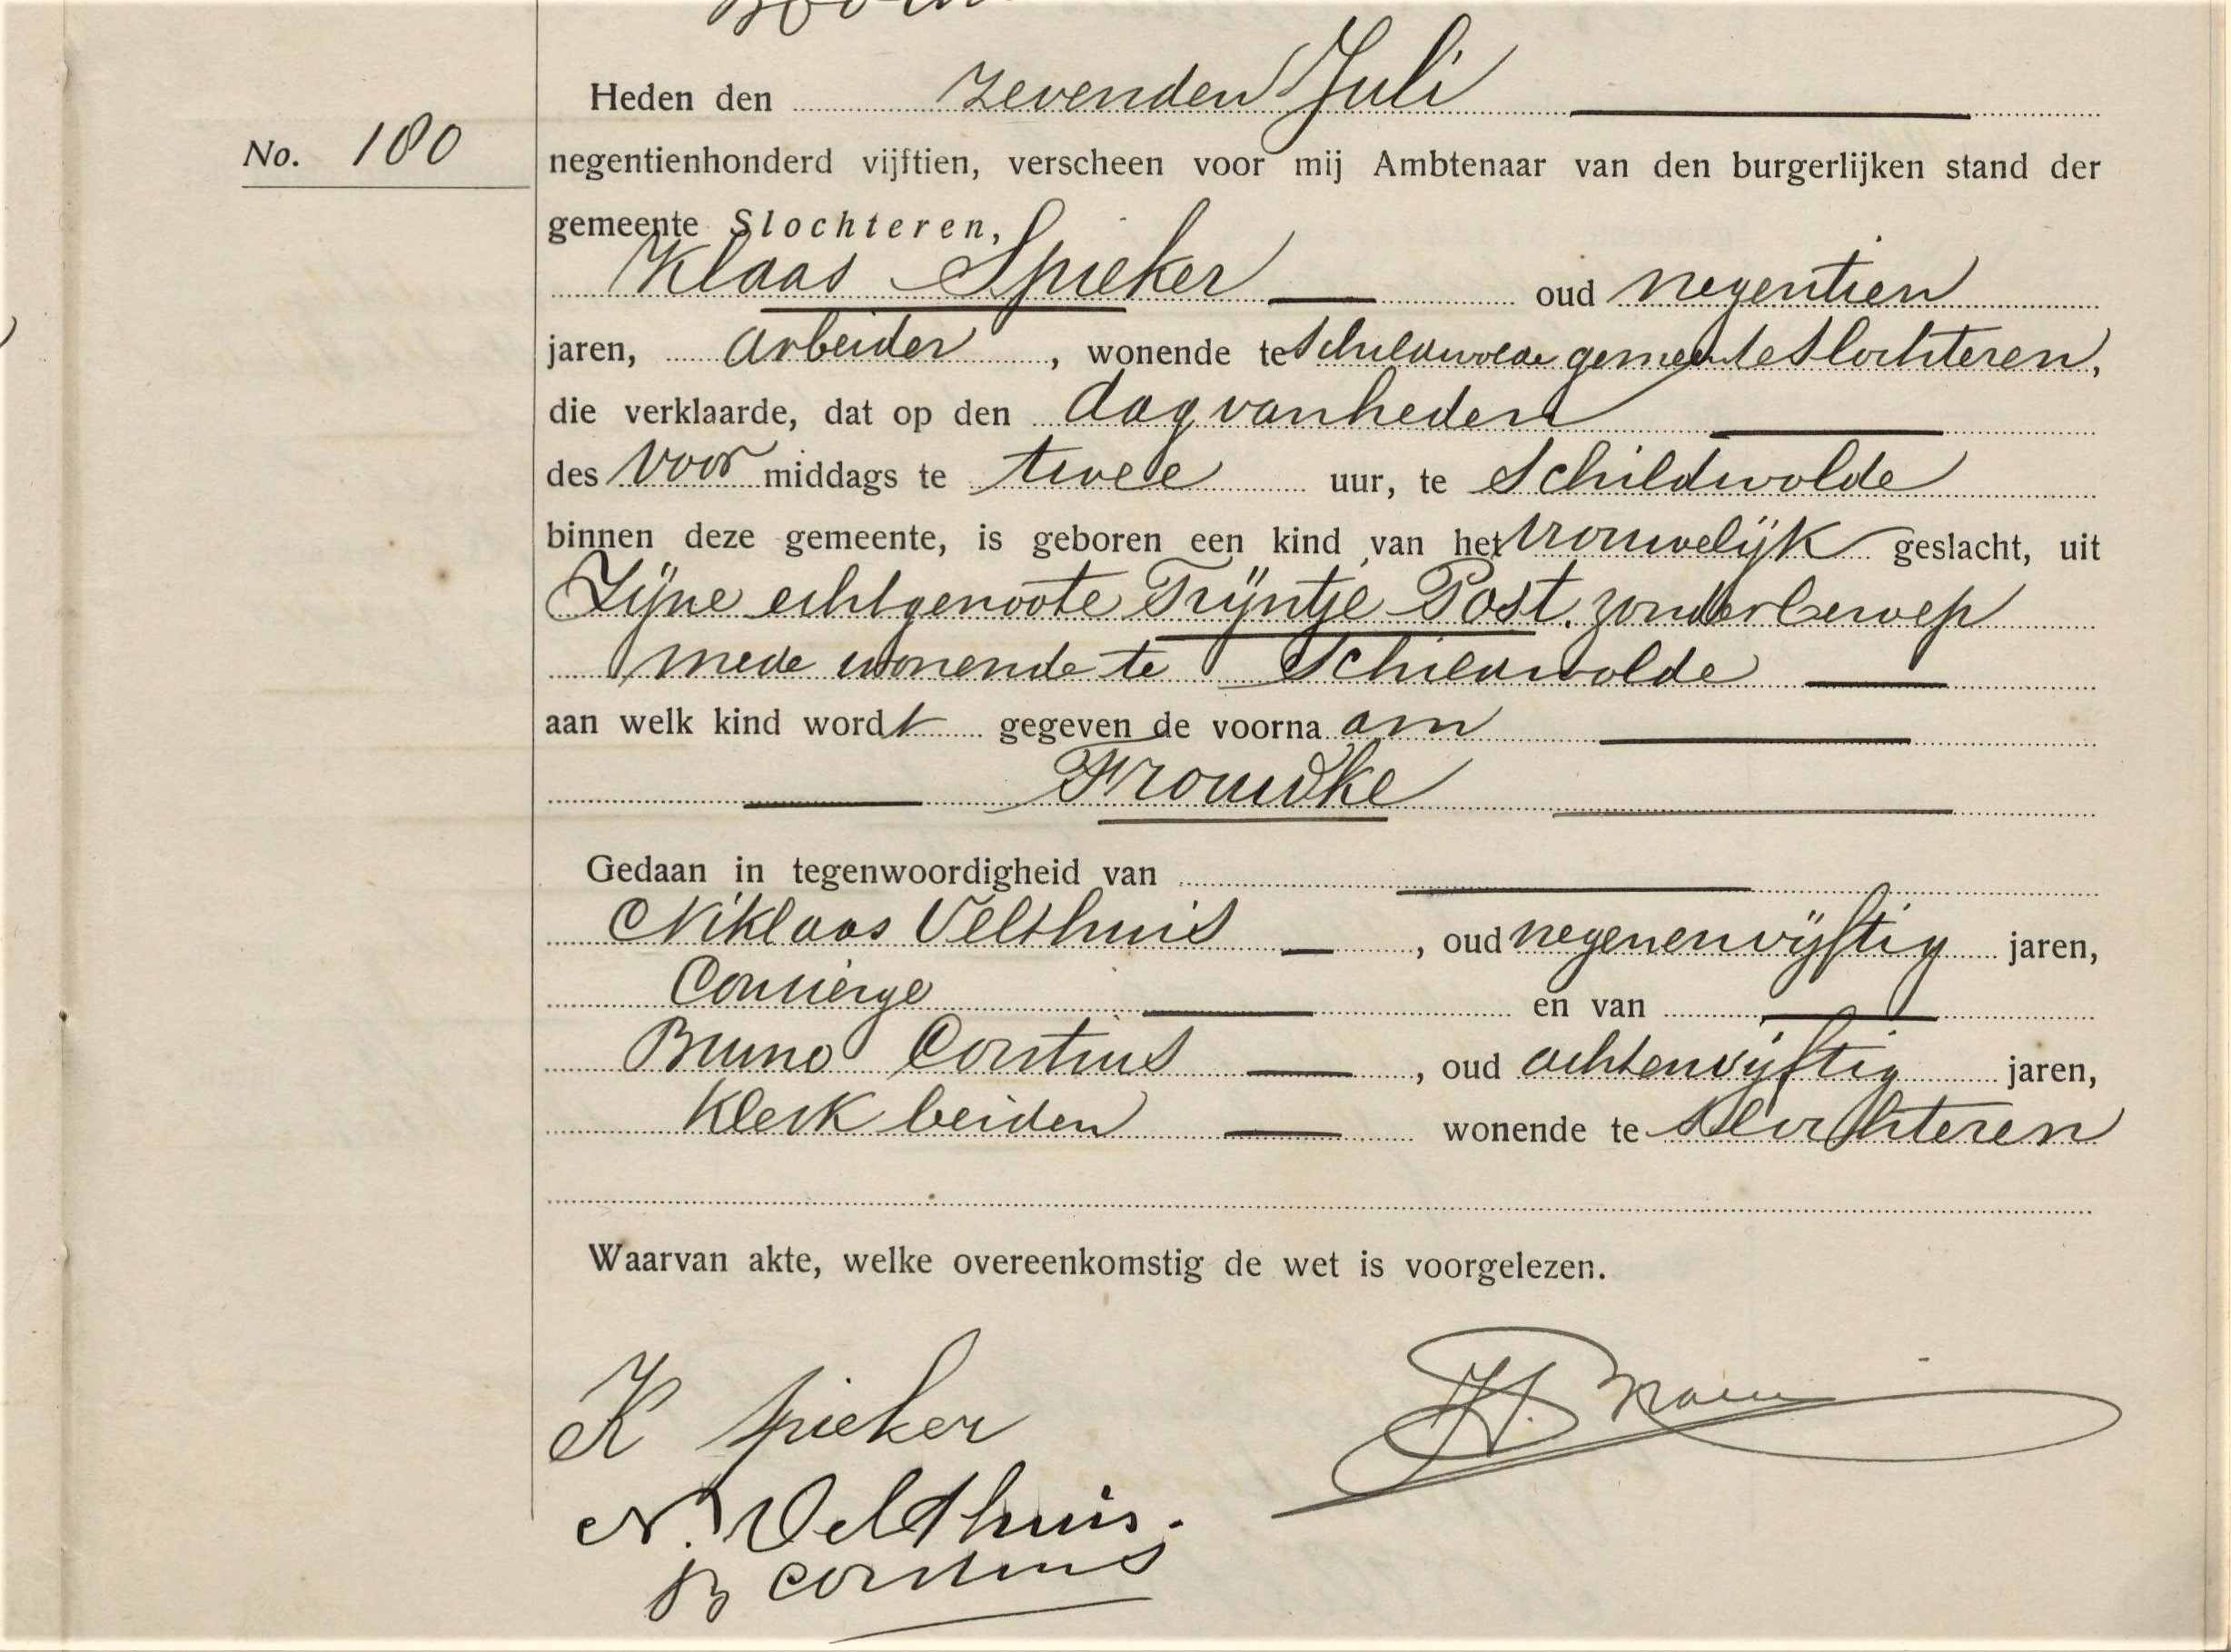 Heden den zevenden Juli
No. 180
negentienhonderd vijftien, verscheen voor mij Ambtenaar van den burgerlijken stand der
gemeente Slochteren,
Klaas Spieker oud negentien
jaren, arbeider, wonende te Schildwolde gemeente Slochteren,
die verklaarde, dat op den dag van heden
des voor middags te twee uur, te Schildwolde
binnen deze gemeente, is geboren een kind van het vrouwelijk geslacht, uit
Zijne echtgenoote Trijntje Post, zonder beroep
mede wonende te Schildwolde
aan welk kind wordt gegeven de voorna am
Frouwke
Gedaan in tegenwoordigheid van
Niklaas Velthuis, oud negenenvijftig jaren,
Concierge en van
Bruno Constius, oud achtenvijftig jaren,
Klerk beiden wonende te Slochteren
Waarvan akte, welke overeenkomstig de wet is voorgelezen.
K Spieker
H.
N. Velthuis.
B